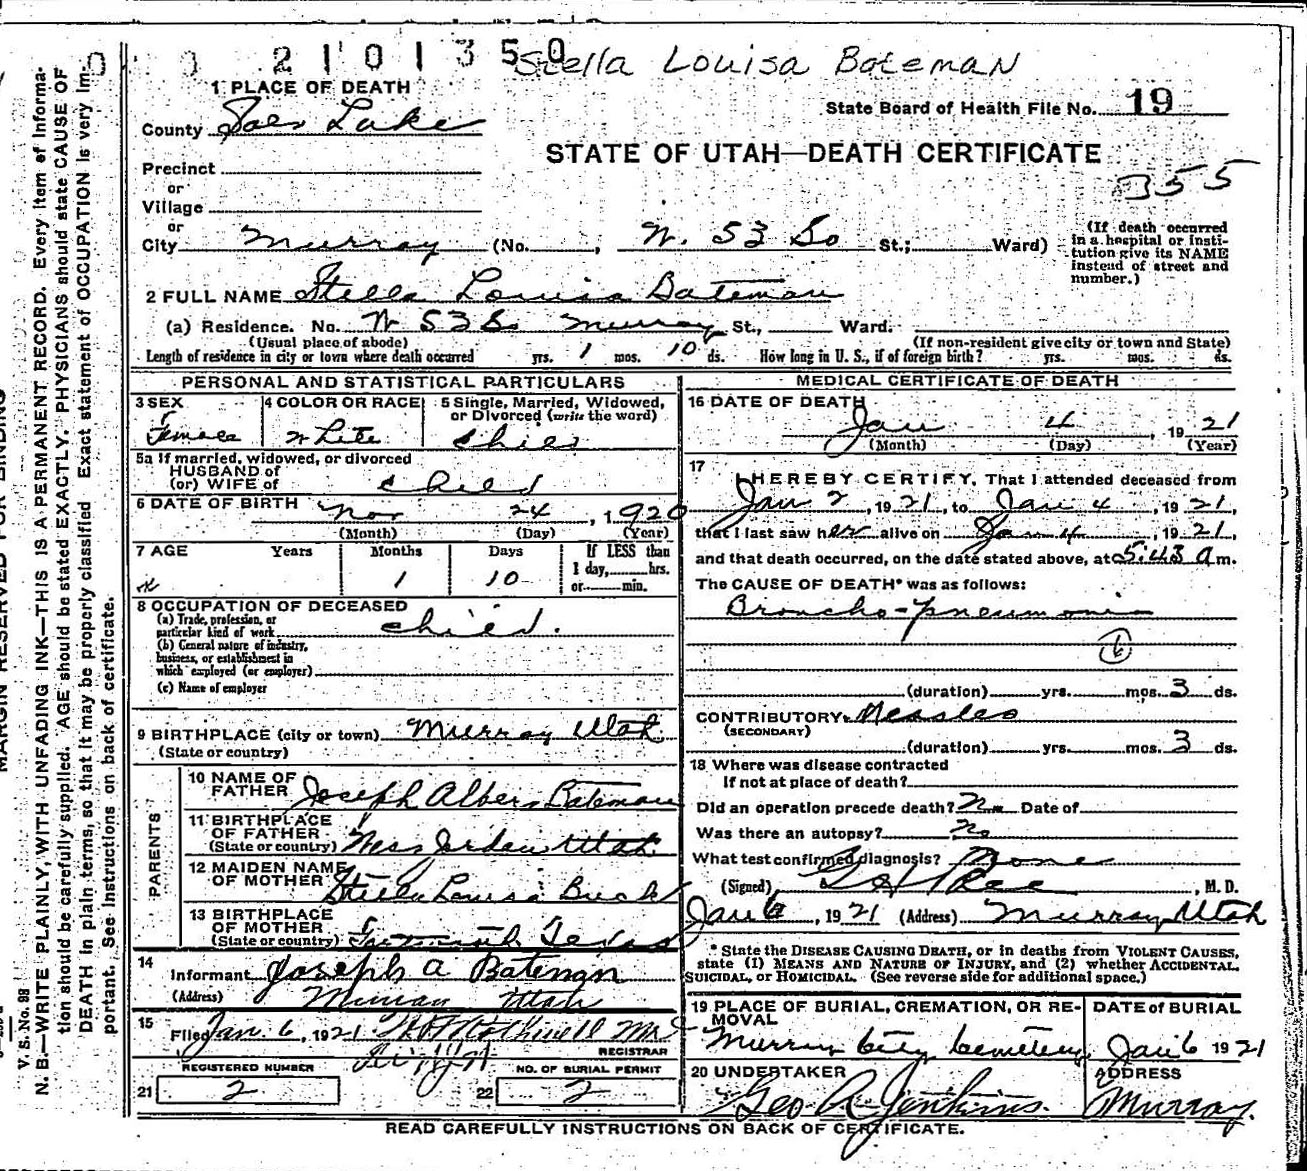 2101350
Stella Louisa Bateman
1 PLACE OF DEATH
State Board of Health File No. 19
County Salt Lake
STATE OF UTAH—DEATH CERTIFICATE
355
Precinct
or
Village
or
City Murray (No. , W. 53 So St.; Ward)
(If death occurred
in a hospital or insti-
tution give its NAME
instead of street and
number.)
2 FULL NAME Stella Louisa Bateman
(a) Residence. No. W 53 So Murray St., Ward.
(Usual place of abode) (If non-resident give city or town and State)
Length of residence in city or town where death occurred yrs. 1 mos. 10 ds. How long in U. S., if of foreign birth? yrs. mos. ds.
PERSONAL AND STATISTICAL PARTICULARS
3 SEX
Female
4 COLOR OR RACE
White
5 Single, Married, Widowed,
or Divorced (write the word)
Child
5a If married, widowed, or divorced
HUSBAND of
(or) WIFE of Child
6 DATE OF BIRTH Nov 24, 1920
(Month) (Day) (Year)
7 AGE Years Months Days If LESS than
1 day, hrs.
or min.
1 10
8 OCCUPATION OF DECEASED
(a) Trade, profession, or
particular kind of work child.
(b) General nature of industry,
business, or establishment in
which employed (or employer)
(c) Name of employer
9 BIRTHPLACE (city or town) Murray Utah
(State or country)
PARENTS
10 NAME OF
FATHER Joseph Albert Bateman
11 BIRTHPLACE
OF FATHER
(State or country) West Jordan Utah
12 MAIDEN NAME
OF MOTHER Stella Louisa Buck
13 BIRTHPLACE
OF MOTHER
(State or country) Texas
14
Informant Joseph A Bateman
(Address) Murray Utah
15
Filed Jan. 6, 1921
REGISTRAR
REGISTERED NUMBER NO. OF BURIAL PERMIT
21 2 22 2
MEDICAL CERTIFICATE OF DEATH
16 DATE OF DEATH
Jan 4, 1921
(Month) (Day) (Year)
17
I HEREBY CERTIFY, That I attended deceased from
Jan 2, 1921, to Jan 4, 1921,
that I last saw her alive on Jan 4, 1921,
and that death occurred, on the date stated above, at 5:43 a m.
The CAUSE OF DEATH* was as follows:
Broncho-pneumonia
6
(duration) yrs. mos. 3 ds.
CONTRIBUTORY Measles
(SECONDARY)
(duration) yrs. mos. 3 ds.
18 Where was disease contracted
If not at place of death?
Did an operation precede death? No Date of
Was there an autopsy? No
What test confirmed diagnosis? None
(Signed) , M. D.
Jan 6, 1921 (Address) Murray, Utah
* State the DISEASE CAUSING DEATH, or in deaths from VIOLENT CAUSES,
state (1) MEANS AND NATURE OF INJURY, and (2) whether ACCIDENTAL,
SUICIDAL, or HOMICIDAL. (See reverse side for additional space.)
19 PLACE OF BURIAL, CREMATION, OR RE-
MOVAL
Murray City Cemetery
DATE OF BURIAL
Jan 6 1921
20 UNDERTAKER
Geo A Jenkins.
ADDRESS
Murray.
READ CAREFULLY INSTRUCTIONS ON BACK OF CERTIFICATE.
MARGIN RESERVED FOR BINDING
V. S. No. 98
N. B.—WRITE PLAINLY, WITH UNFADING INK—THIS IS A PERMANENT RECORD. Every item of Informa-
tion should be carefully supplied. AGE should be stated EXACTLY. PHYSICIANS should state CAUSE OF
DEATH in plain terms, so that it may be properly classified. Exact statement of OCCUPATION is very Im-
portant. See Instructions on back of certificate.